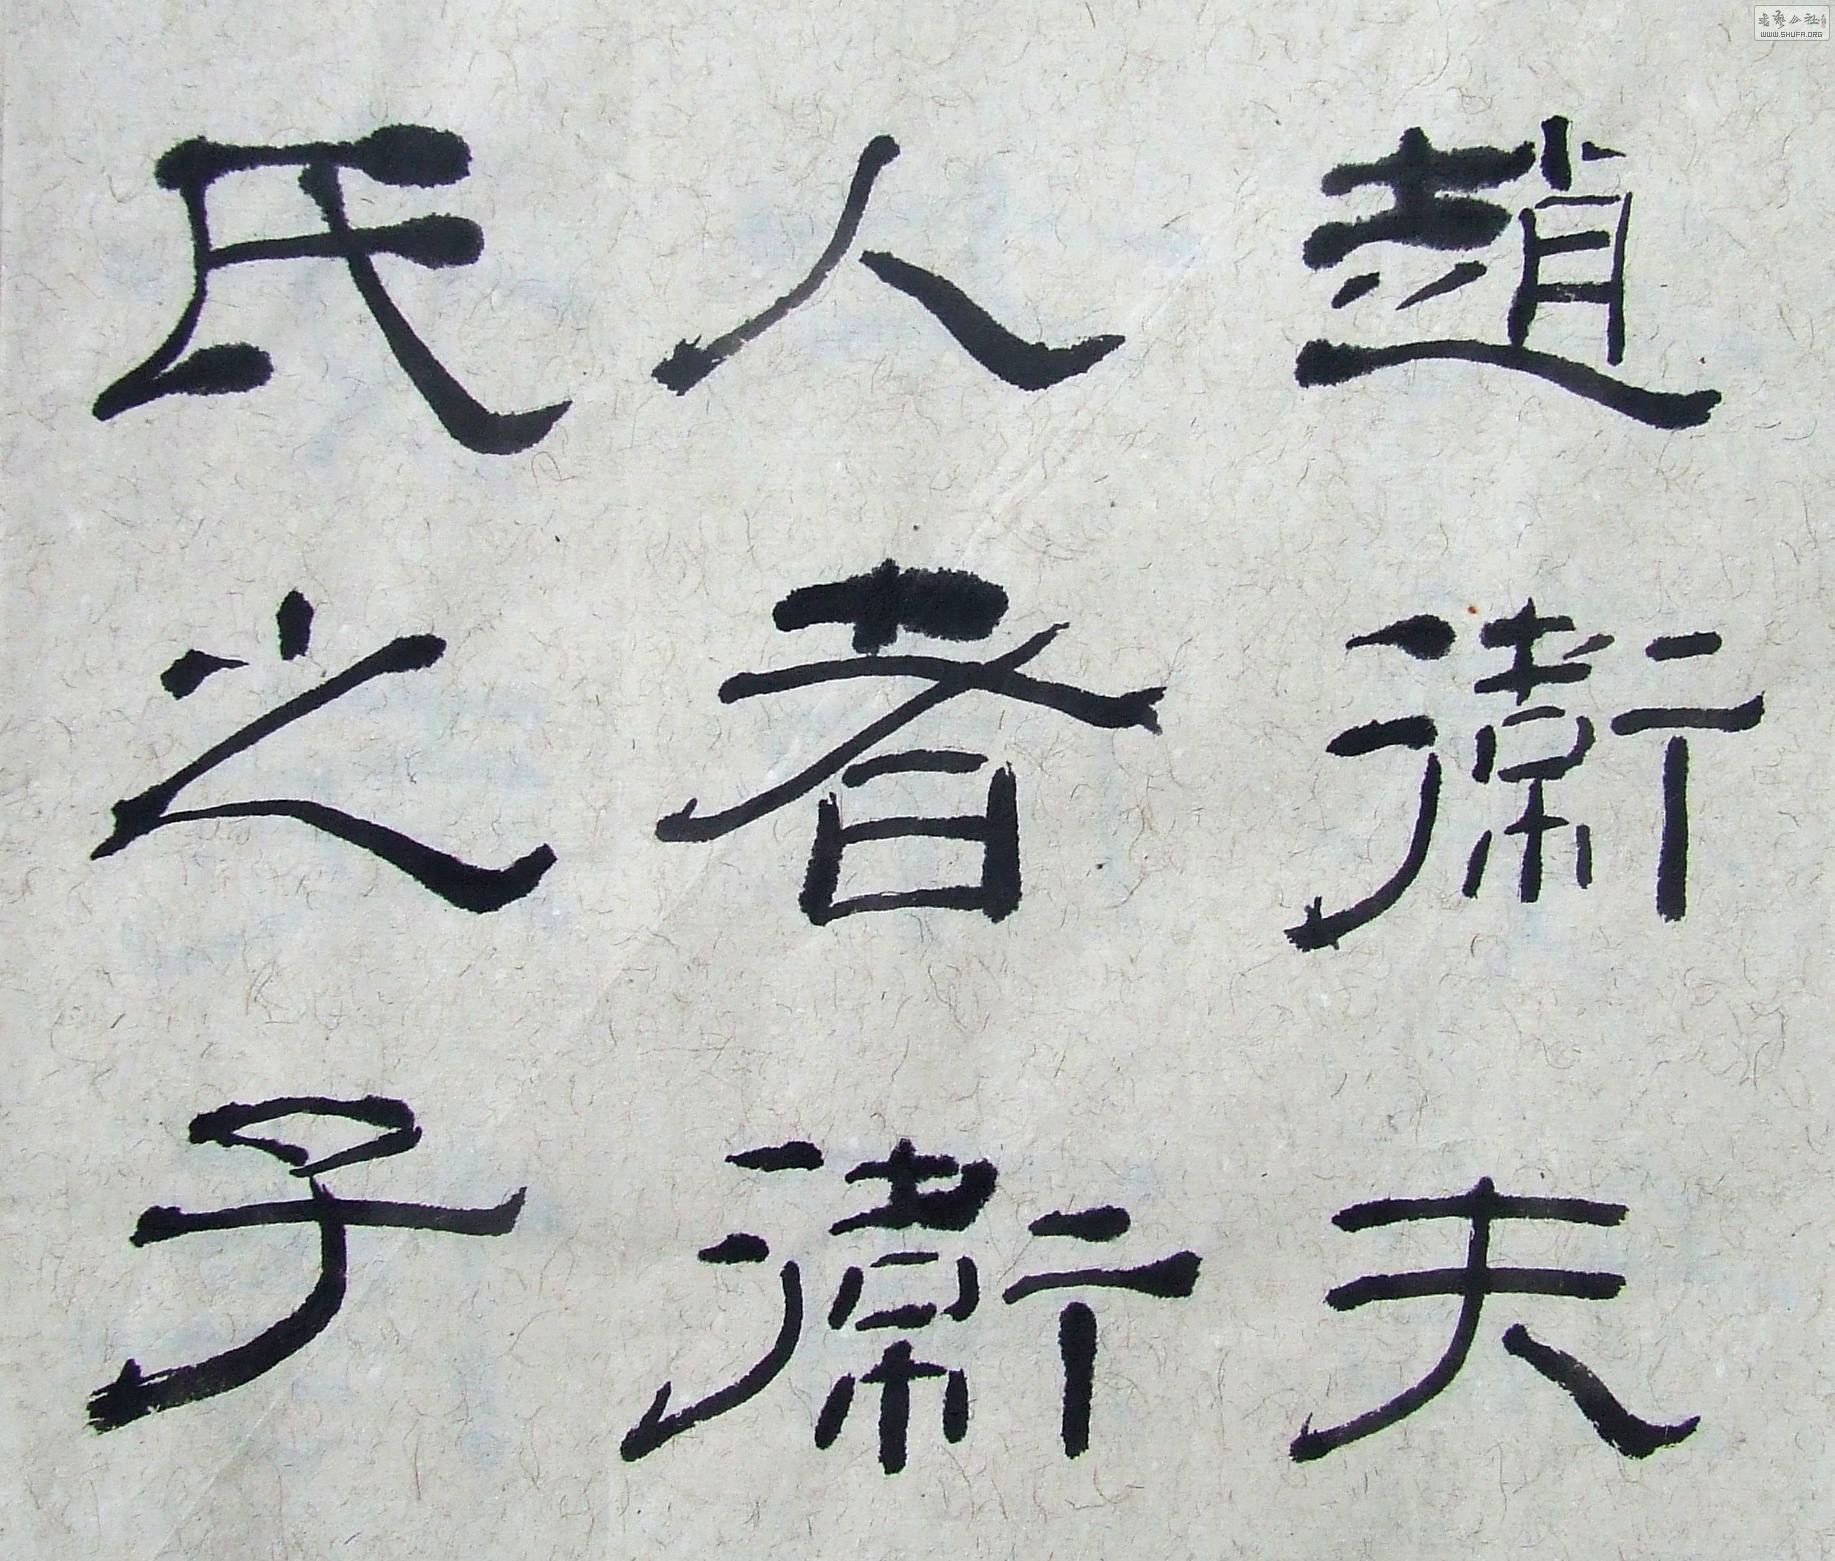 趙衛夫
人者衛
氏之子
書藝公社
WWW.SHUFA.ORG